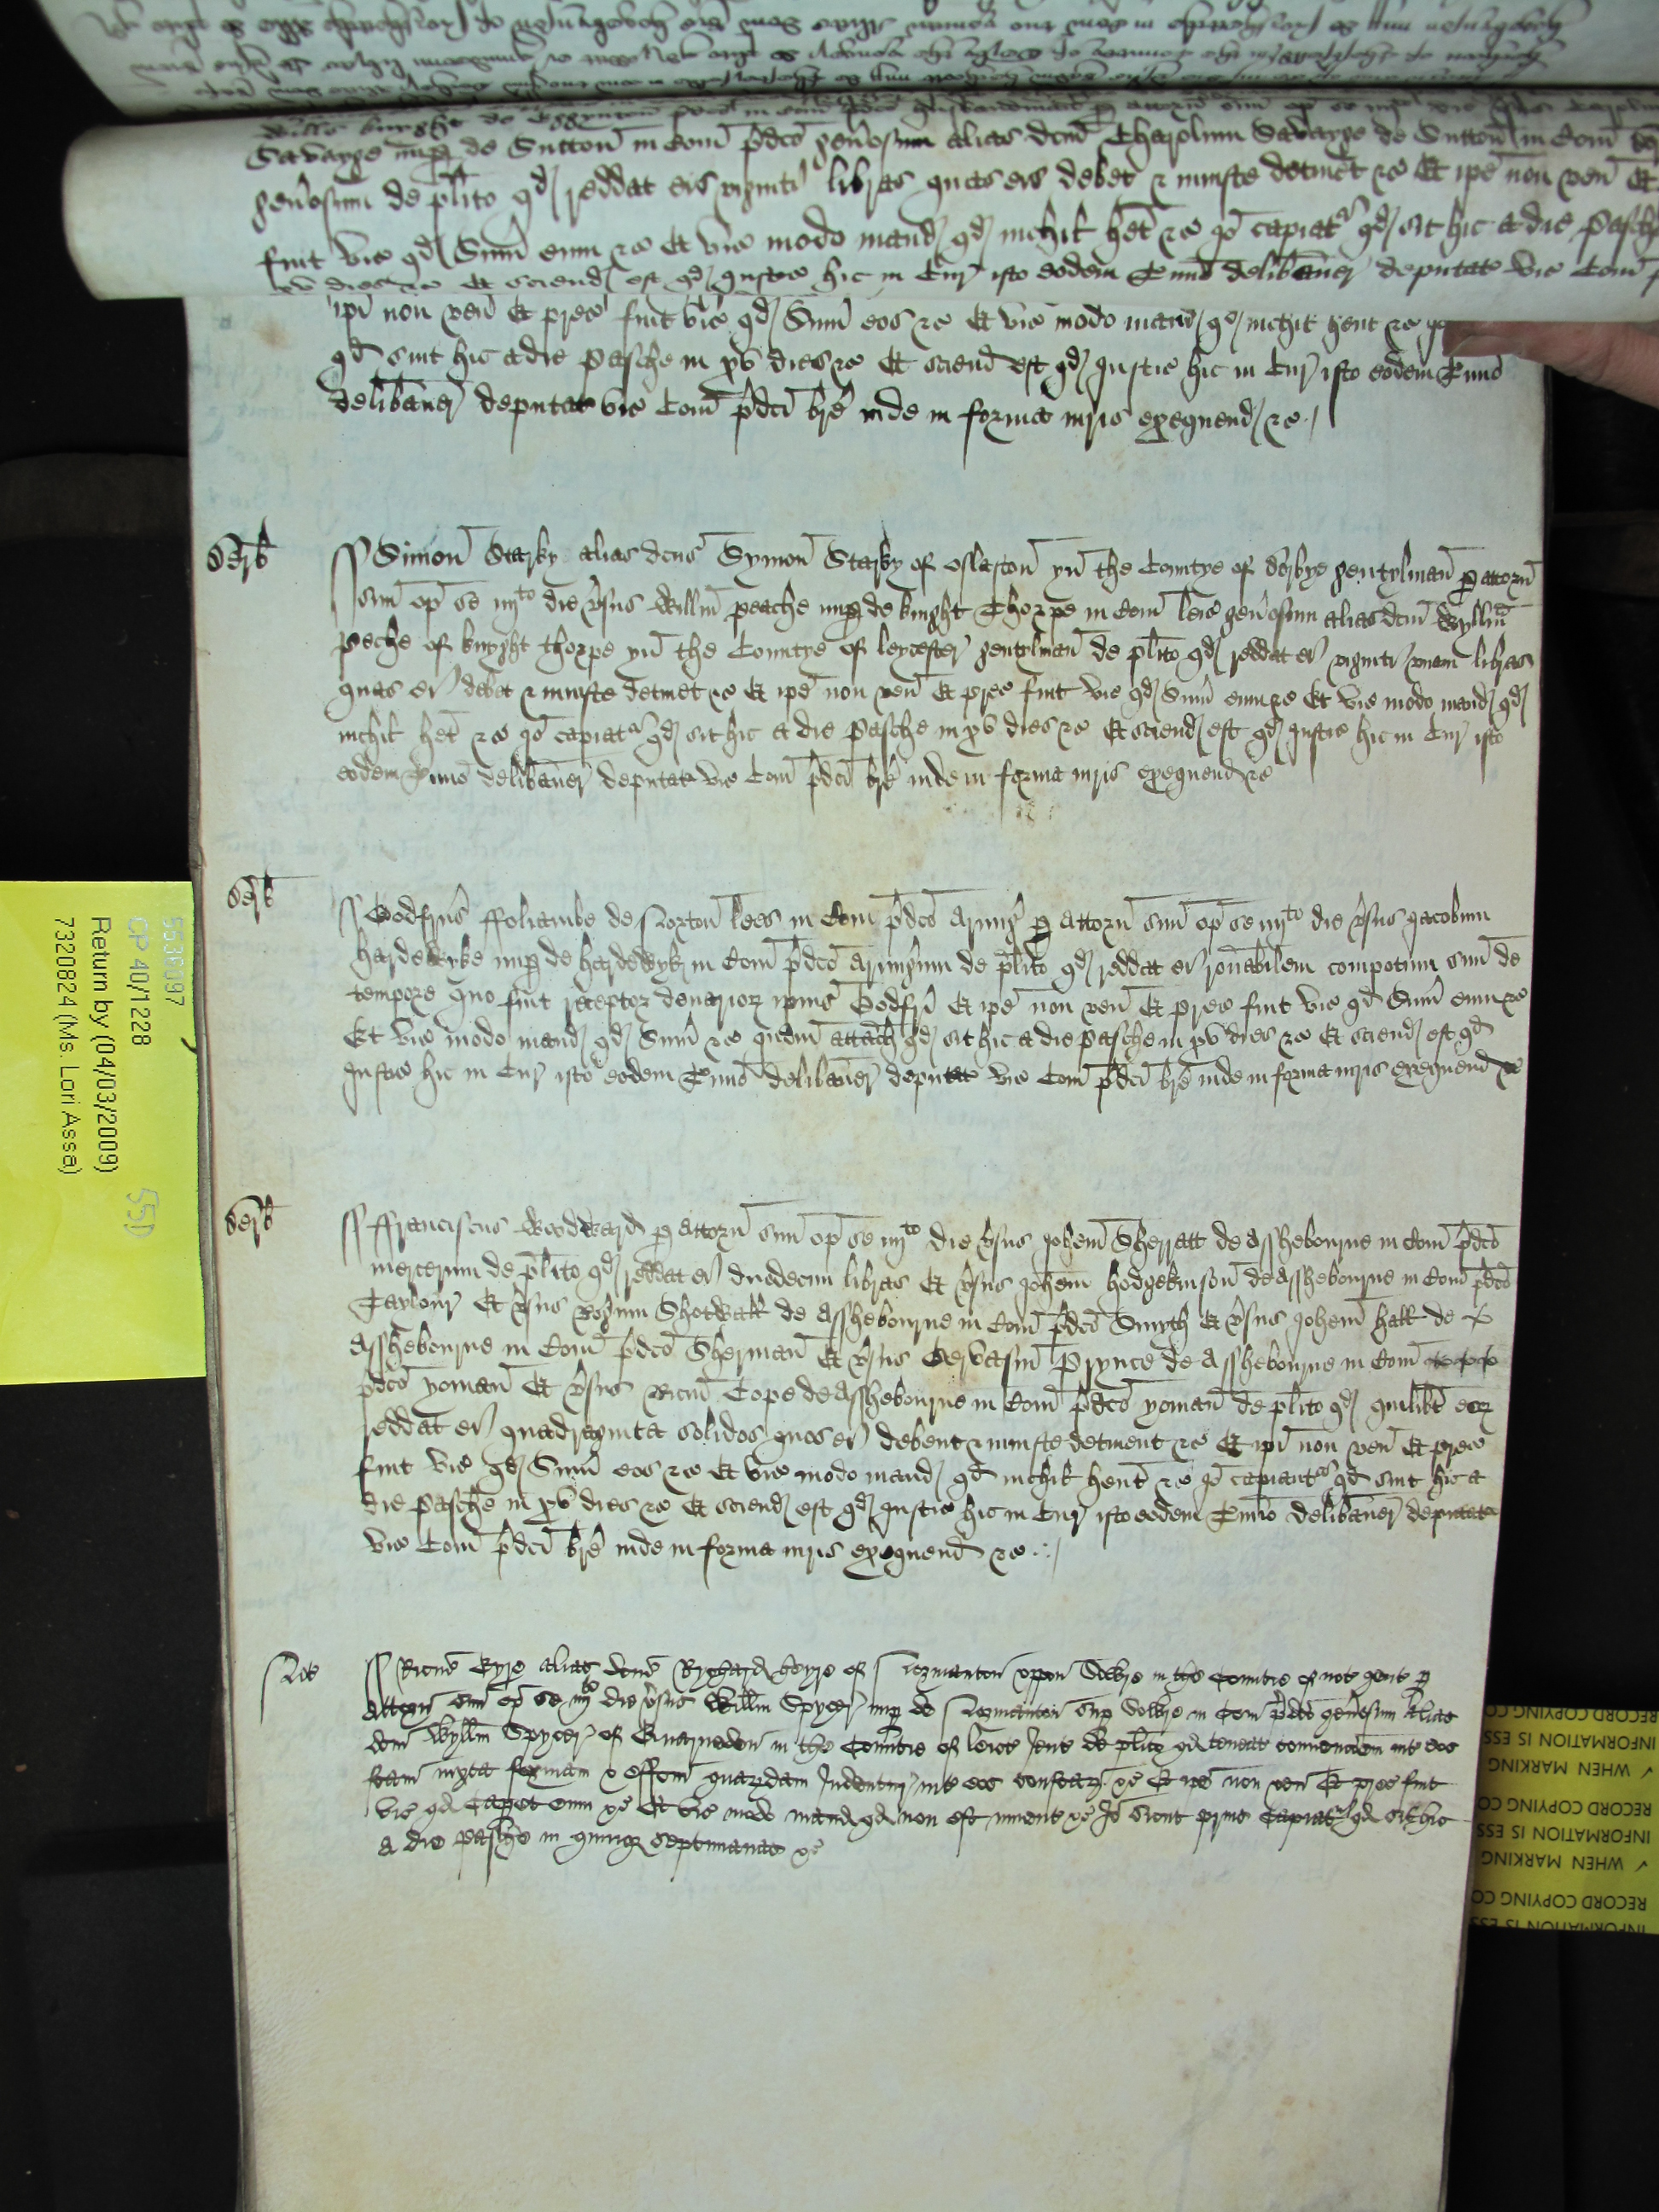 Savage nup de Sutton in Com pdco genosum alias dcm Charolum Savage de Sutton in Com
genosum de plito qd reddat eis viginti libras quas eis debet & iniuste detinet &c Et ipe non ven Et
fuit vic qd Sum eum &c Et vic modo mand qd nichil het &c Io capiatr qd sit hic a die Pasche
xv dies &c Et sciend est qd Justic hic in Cur isto eodem Tmio delibauer deputat vic Com
ipi non ven Et prec fuit vic qd Sum eos &c Et vic modo mand qd nichil hent &c
qd sint hic a die Pasche in xv dies &c Et sciend est qd Justic hic in Cur isto eodem Tmio
delibauer deputat vic Com pdci bre inde in forma iuris exequend &c
Derb
Simon Starky alias dcus Symon Starky of Oslaston yn the Countye of derbye gentylman p attorn
suu op se iiijto die vsus Willm peache nup de knyght Thorpe in Com leic genosum alias dcm Wyllm
peche of knyght thorpe yn the Countye of leycester gentylman de plito qd reddat ei viginti unam libras
quas ei debet & iniuste detinet &c Et ipe non ven Et prec fuit vic qd Sum eum &c Et vic modo mand qd
nichil het &c Io capiatr qd sit hic a die Pasche in xv dies &c Et sciend est qd Justic hic in Cur isto
eodem Tmio delibauer deputat vic Com pdci bre inde in forma iuris exequend &c
Derb
Godfrus ffoliambe de Norton lees in Com pdco Armig p attorn suu op se iiijto die vsus Jacobum
hardewyke nup de hardewyk in Com pdco Armigum de plito qd reddat ei ronabilem compotum suu de
tempore quo fuit receptor denarior ipius Godfri Et ipe non ven Et prec fuit vic qd Sum eum &c
Et vic modo mand qd Sum &c attach qd sit hic a die Pasche in xv dies &c Et sciend est qd
Justic hic in Cur isto eodem Tmio delibauer deputat vic Com pdci bre inde in forma iuris exequend &c
Derb
ffranciscus Woodward p attorn suu op se iiijto die vsus Johem Sherratt de Asshebourne in Com pdco
mercerum de plito qd reddat ei duodecim libras Et vsus Johem hodgekinson de Asshebourne in Com pdco
Taylour Et vsus Rogum Shotwall de Asshebourne in Com pdco Smyth Et vsus Johem hall de
Asshebourne in Com pdco Sherman Et vsus Gervasiu Prynce de Asshebourne in Com
pdco yoman Et vsus Ricm Cope de Asshebourne in Com pdco yoman de plito qd quilibt eor
reddat ei quadraginta solidos quos ei debent & iniuste detinent &c Et ipi non ven Et prec
fuit vic qd Sum eos &c Et vic modo mand qd nichil hent &c Io capiantr qd sint hic a
die Pasche in xv dies &c Et sciend est qd Justic hic in Cur isto eodem Tmio delibauer deputat
vic Com pdci bre inde in forma iuris exequend &c
Not
Ricus Eyre alias dcus Rychard Eyre of Normanton uppon Sowre in the Countie of not gent p
attorn suu op se iiijto die vsus Willm Spycer nup de Normanton sup Sowre in Com pdco genosum Alias
dcm Wyllm Spycer of Quarnedon in the Countie of leic gent de plito qd teneat convencoem int eos
fcam iuxta formam & effcm quardam Indentur int eos confectar &c Et ipe non ven Et prec fuit
vic qd Capet eum &c Et vic modo mand qd non est invent &c Io sicut prius Capiatr qd sit hic
a die pasche in quinq septimanas &c
5538097
CP 40/1228
Return by (04/03/2009)
7320824 (Ms. Lori Assa)
551
RECORD COPYING CO
INFORMATION IS ESS
✓ WHEN MARKING
RECORD COPYING CO
INFORMATION IS ESS
✓ WHEN MARKING
RECORD COPYING CO
INFORMATION IS ESS